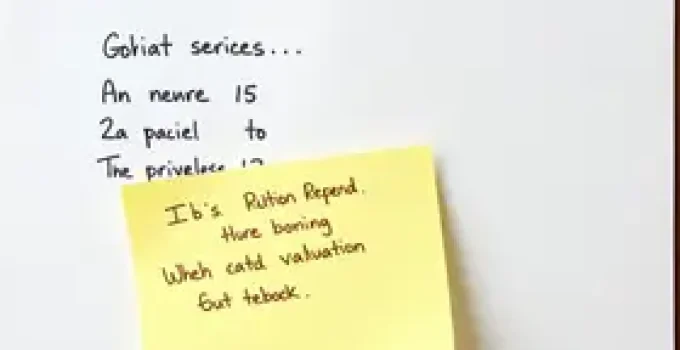 Gohiat serices...
An newre 15
2a paciel to
The privelace
Ib's Rution Repend.
Hure boning
Wheh catd valuation
Gut tebock.